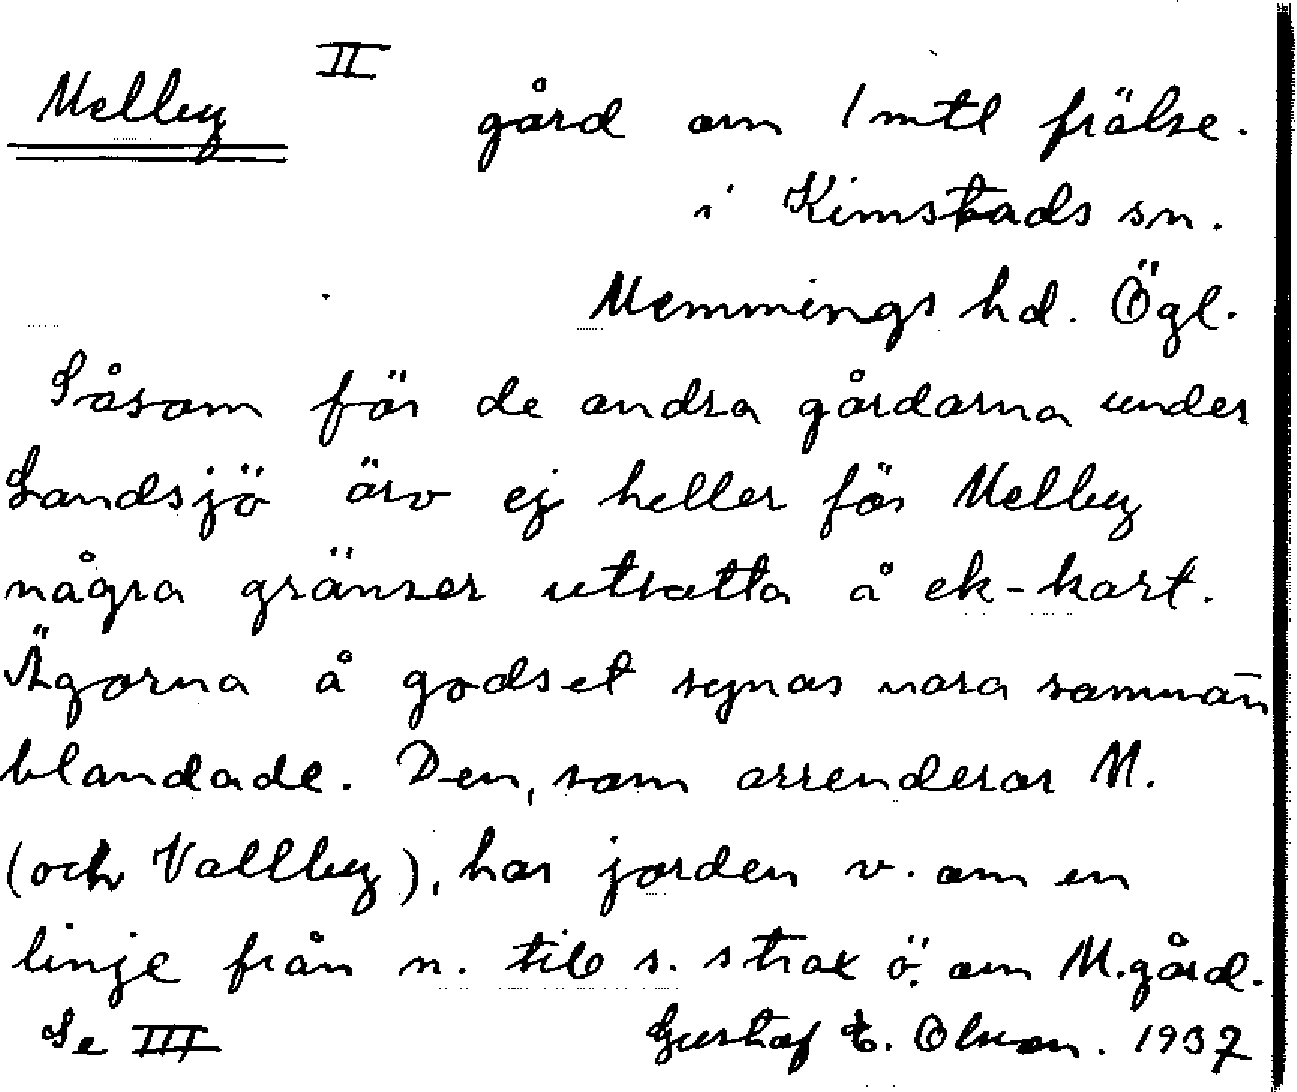 II
Melby gård om 1 mtl frälse.
i Kimstads sn.
Memmings hd. Ögl.
Såsom för de andra gårdarna under
Landsjö äro ej heller för Melby
några gränser utsatta å ek-kart.
Ägorna å godset synas vara samman
blandade. Den, som arrenderar M.
(och Vallby), har jorden v. om en
linje från n. till s. strax ö. om M.gård.
Se III Gustaf E. Olsson. 1937